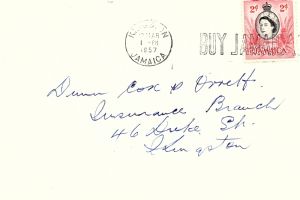 KINGSTON
MAR
1 - PM
1957
JAMAICA
BUY JAMAICA
2d 2d
Dunn Cox & Orrett
Insurance Branch
46 Duke St.
Kingston